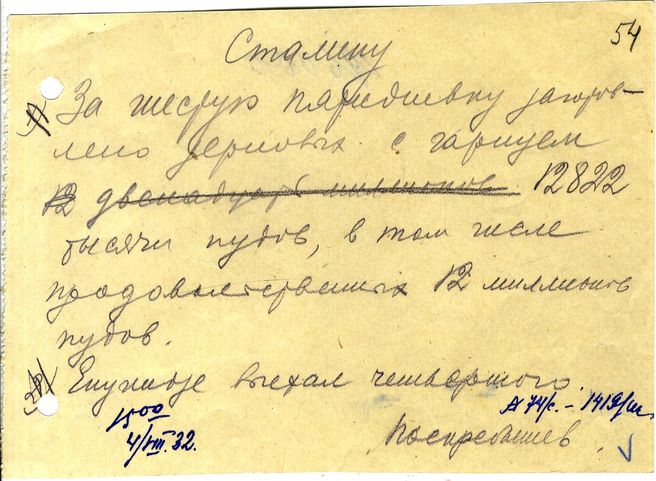 54
Сталину
1) За шестую пятидневку заготов-
лено зерновых с гарнцем
12 двенадцать миллионов 12822
тысячи пудов, в том числе
продовольственных 12 миллионов
пудов.
2) Енукидзе выехал четвертого.
15 00
4/VIII.32.
Поскребышев